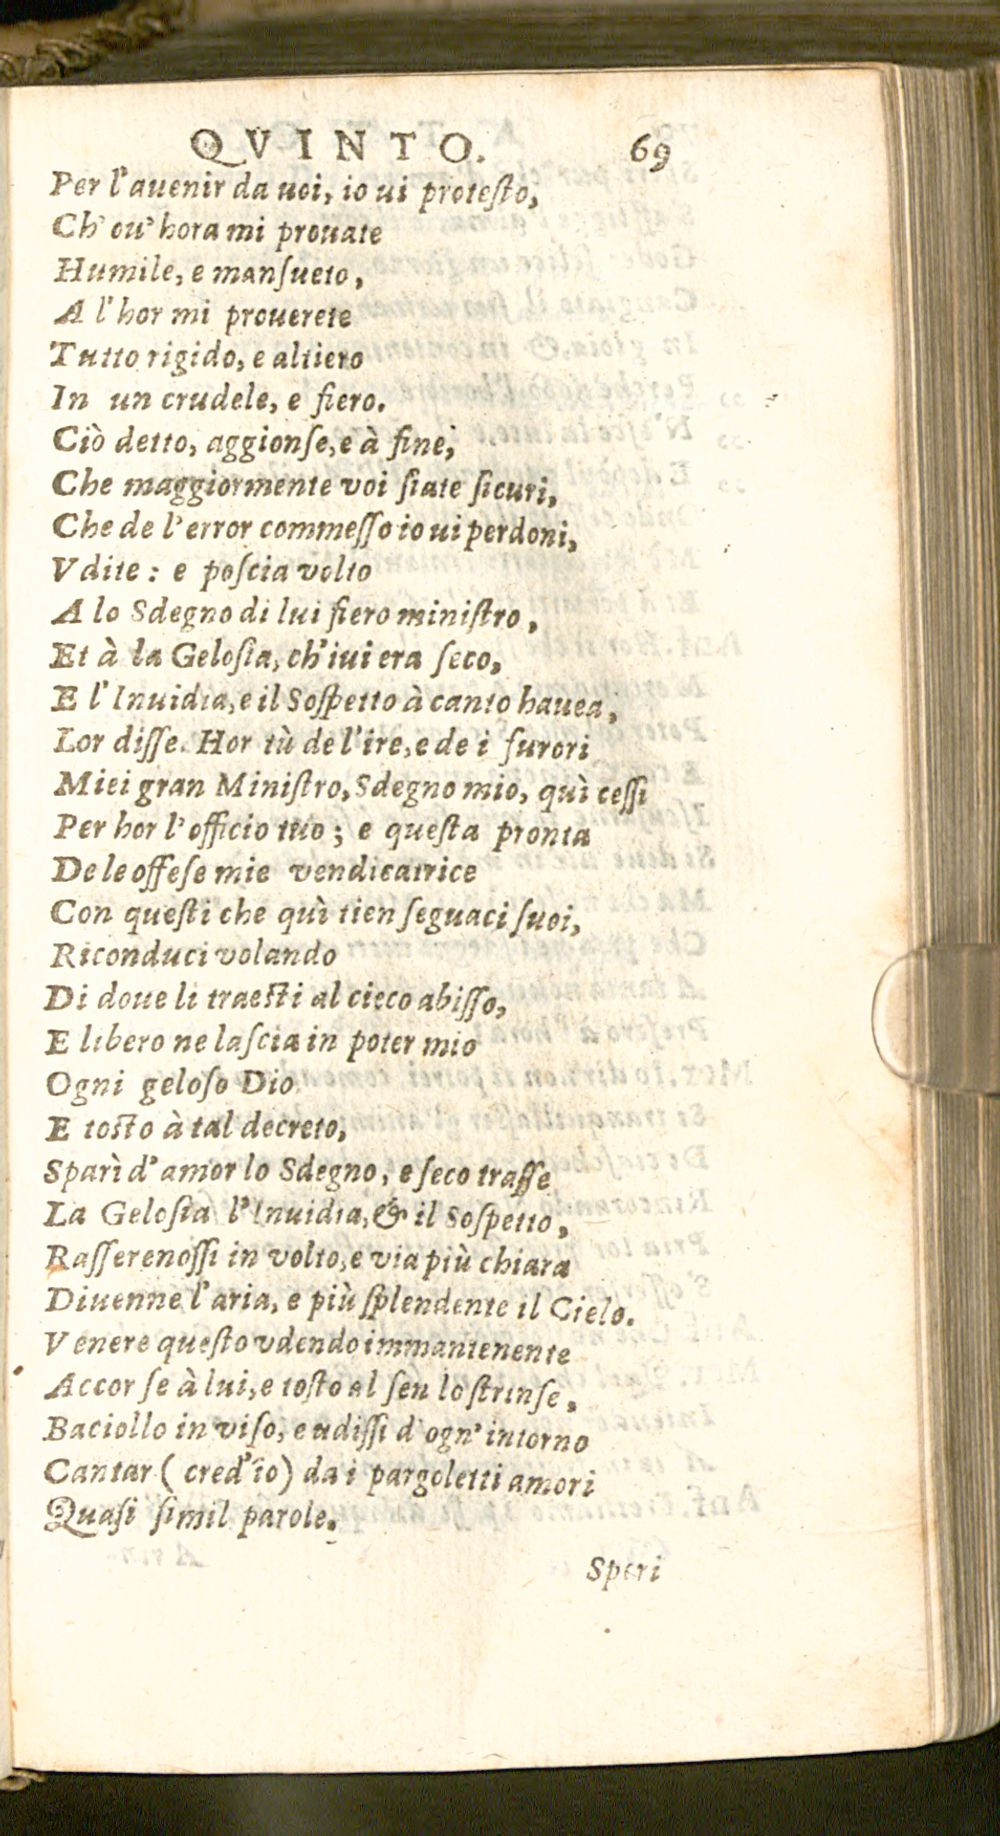 QVINTO. 69
Per l'auenir da uoi, io ui proteſto,
Ch' ou' hora mi prouate
Humile, e manſueto,
A l'hor mi prouerete
Tutto rigido, e altiero
In un crudele, e fiero.
Ciò detto, aggionſe, e à fine,
Che maggiormente voi ſiate ſicuri,
Che de l'error commeſſo io ui perdoni,
Vdite: e poſcia volto
A lo Sdegno di lui fiero miniſtro,
Et à la Geloſia, ch'iui era ſeco,
E l'Inuidia, e il Soſpetto à canto hauea,
Lor diſſe. Hor tù de l'ire, e de i furori
Miei gran Miniſtro, Sdegno mio, quì ceſſi
Per hor l'officio tuo; e queſta pronta
De le offeſe mie vendicatrice
Con queſti che quì tien ſeguaci ſuoi,
Riconduci volando
Di doue li traeſti al cieco abiſſo,
E libero ne laſcia in poter mio
Ogni geloſo Dio
E toſto à tal decreto,
Sparì d'amor lo Sdegno, e ſeco traſſe
La Geloſia l'Inuidia, & il Soſpetto,
Raſſerenoſſi in volto, e via più chiara
Diuenne l'aria, e più ſplendente il Cielo.
Venere queſto vdendo immantenente
Accorſe à lui, e toſto al ſen lo ſtrinſe,
Baciollo in viſo, e udiſſi d'ogn'intorno
Cantar (cred'io) da i pargoletti amori
Quaſi ſimil parole.
Speri